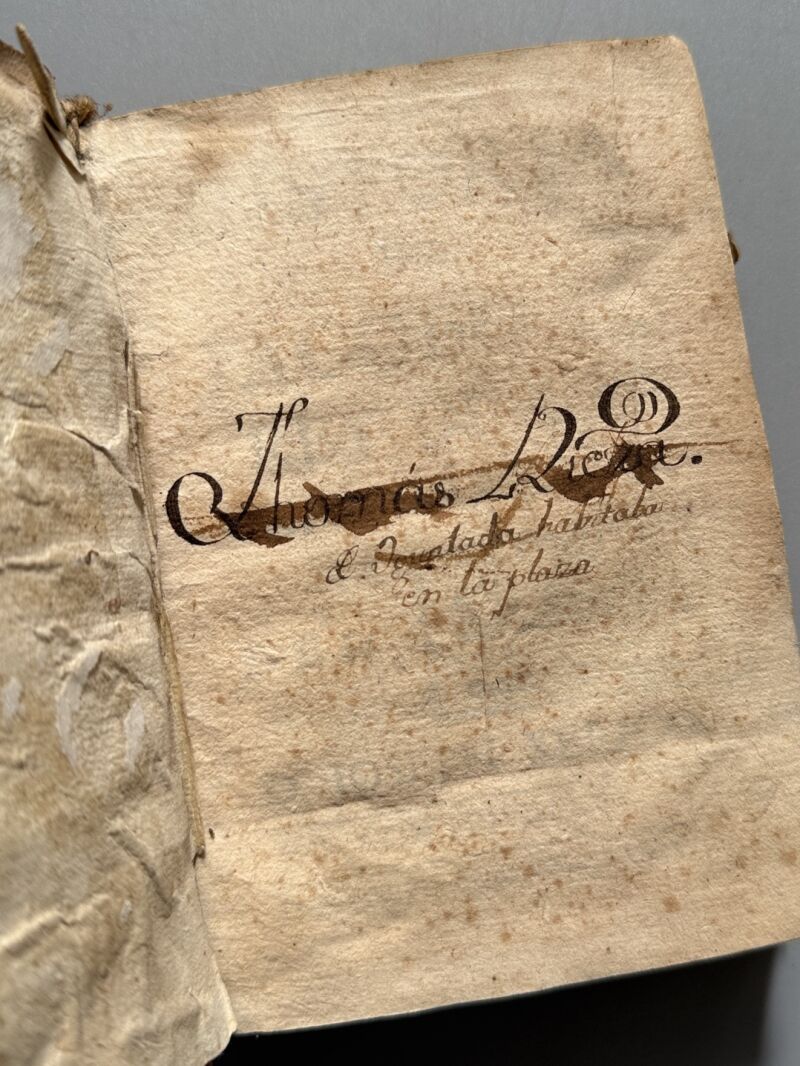 Thomás Riera.
de Igualada habitaba
en la plaza